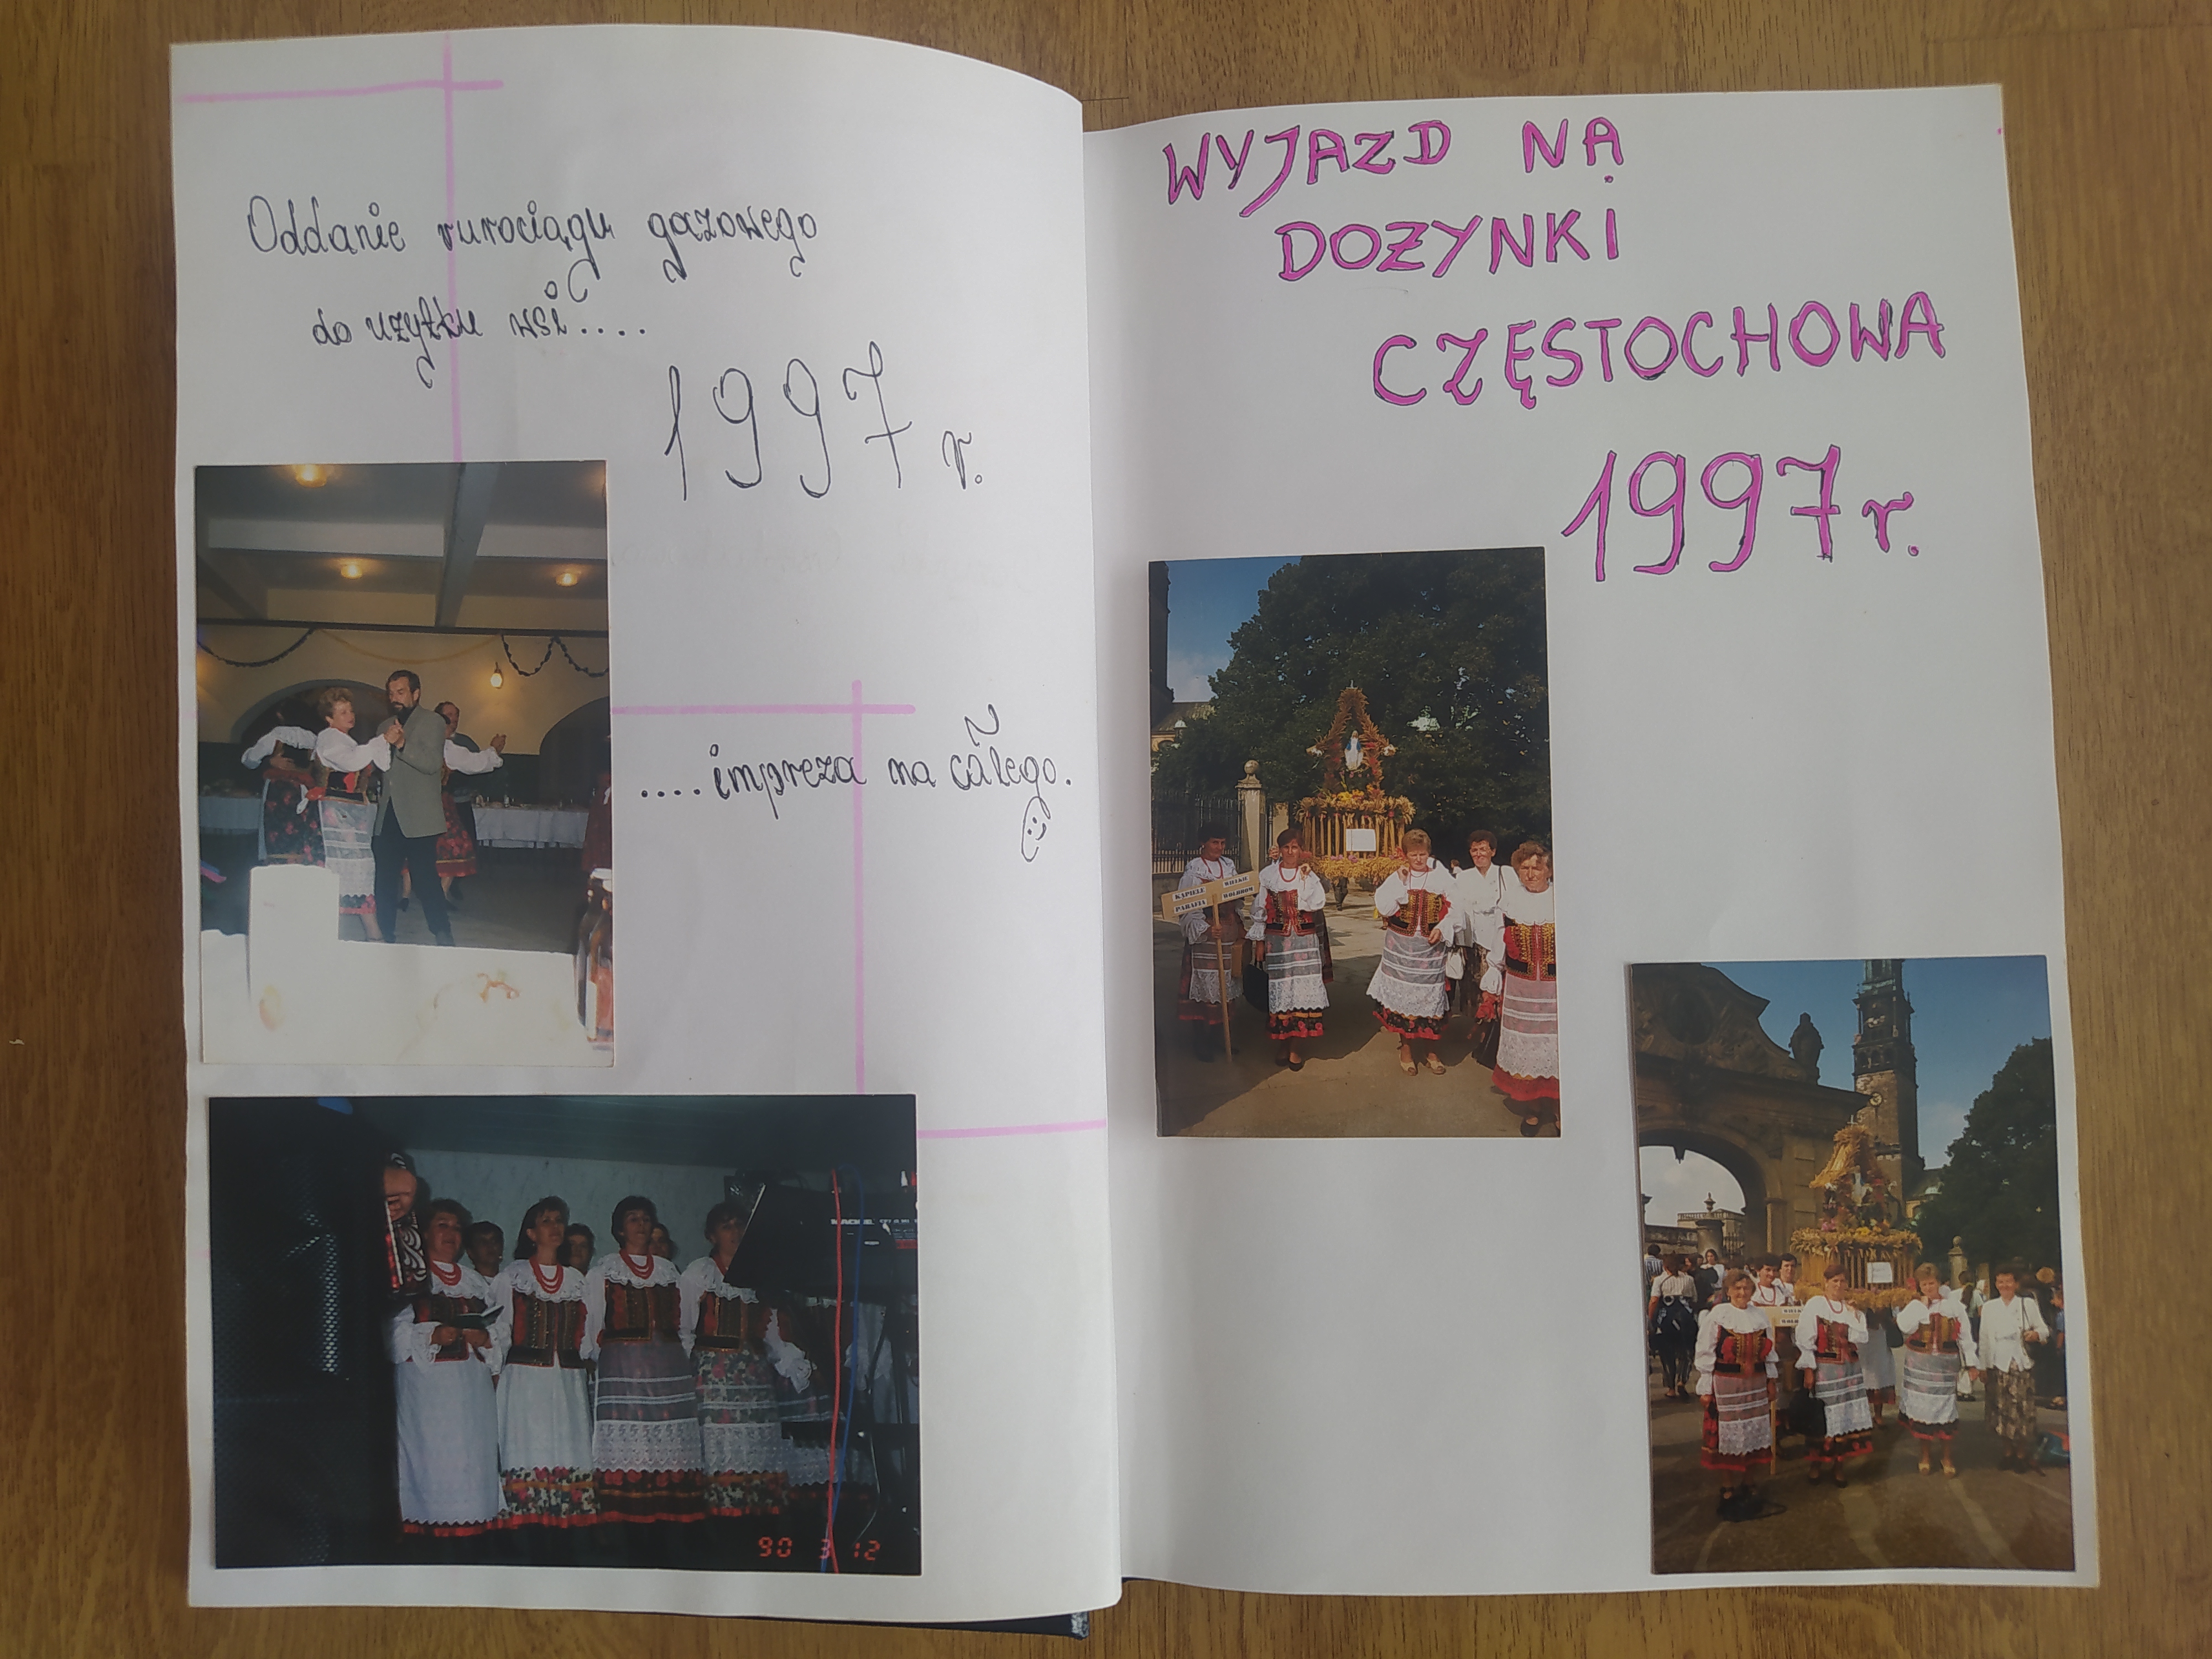 Oddanie rurociągu gazowego
do użytku wsi....
1997 r.
....impreza na całego.
90 3 12
WYJAZD NA
DOŻYNKI
CZĘSTOCHOWA
1997 r.
KĄPIELE WIELKIE
PARAFIA WOLBROM